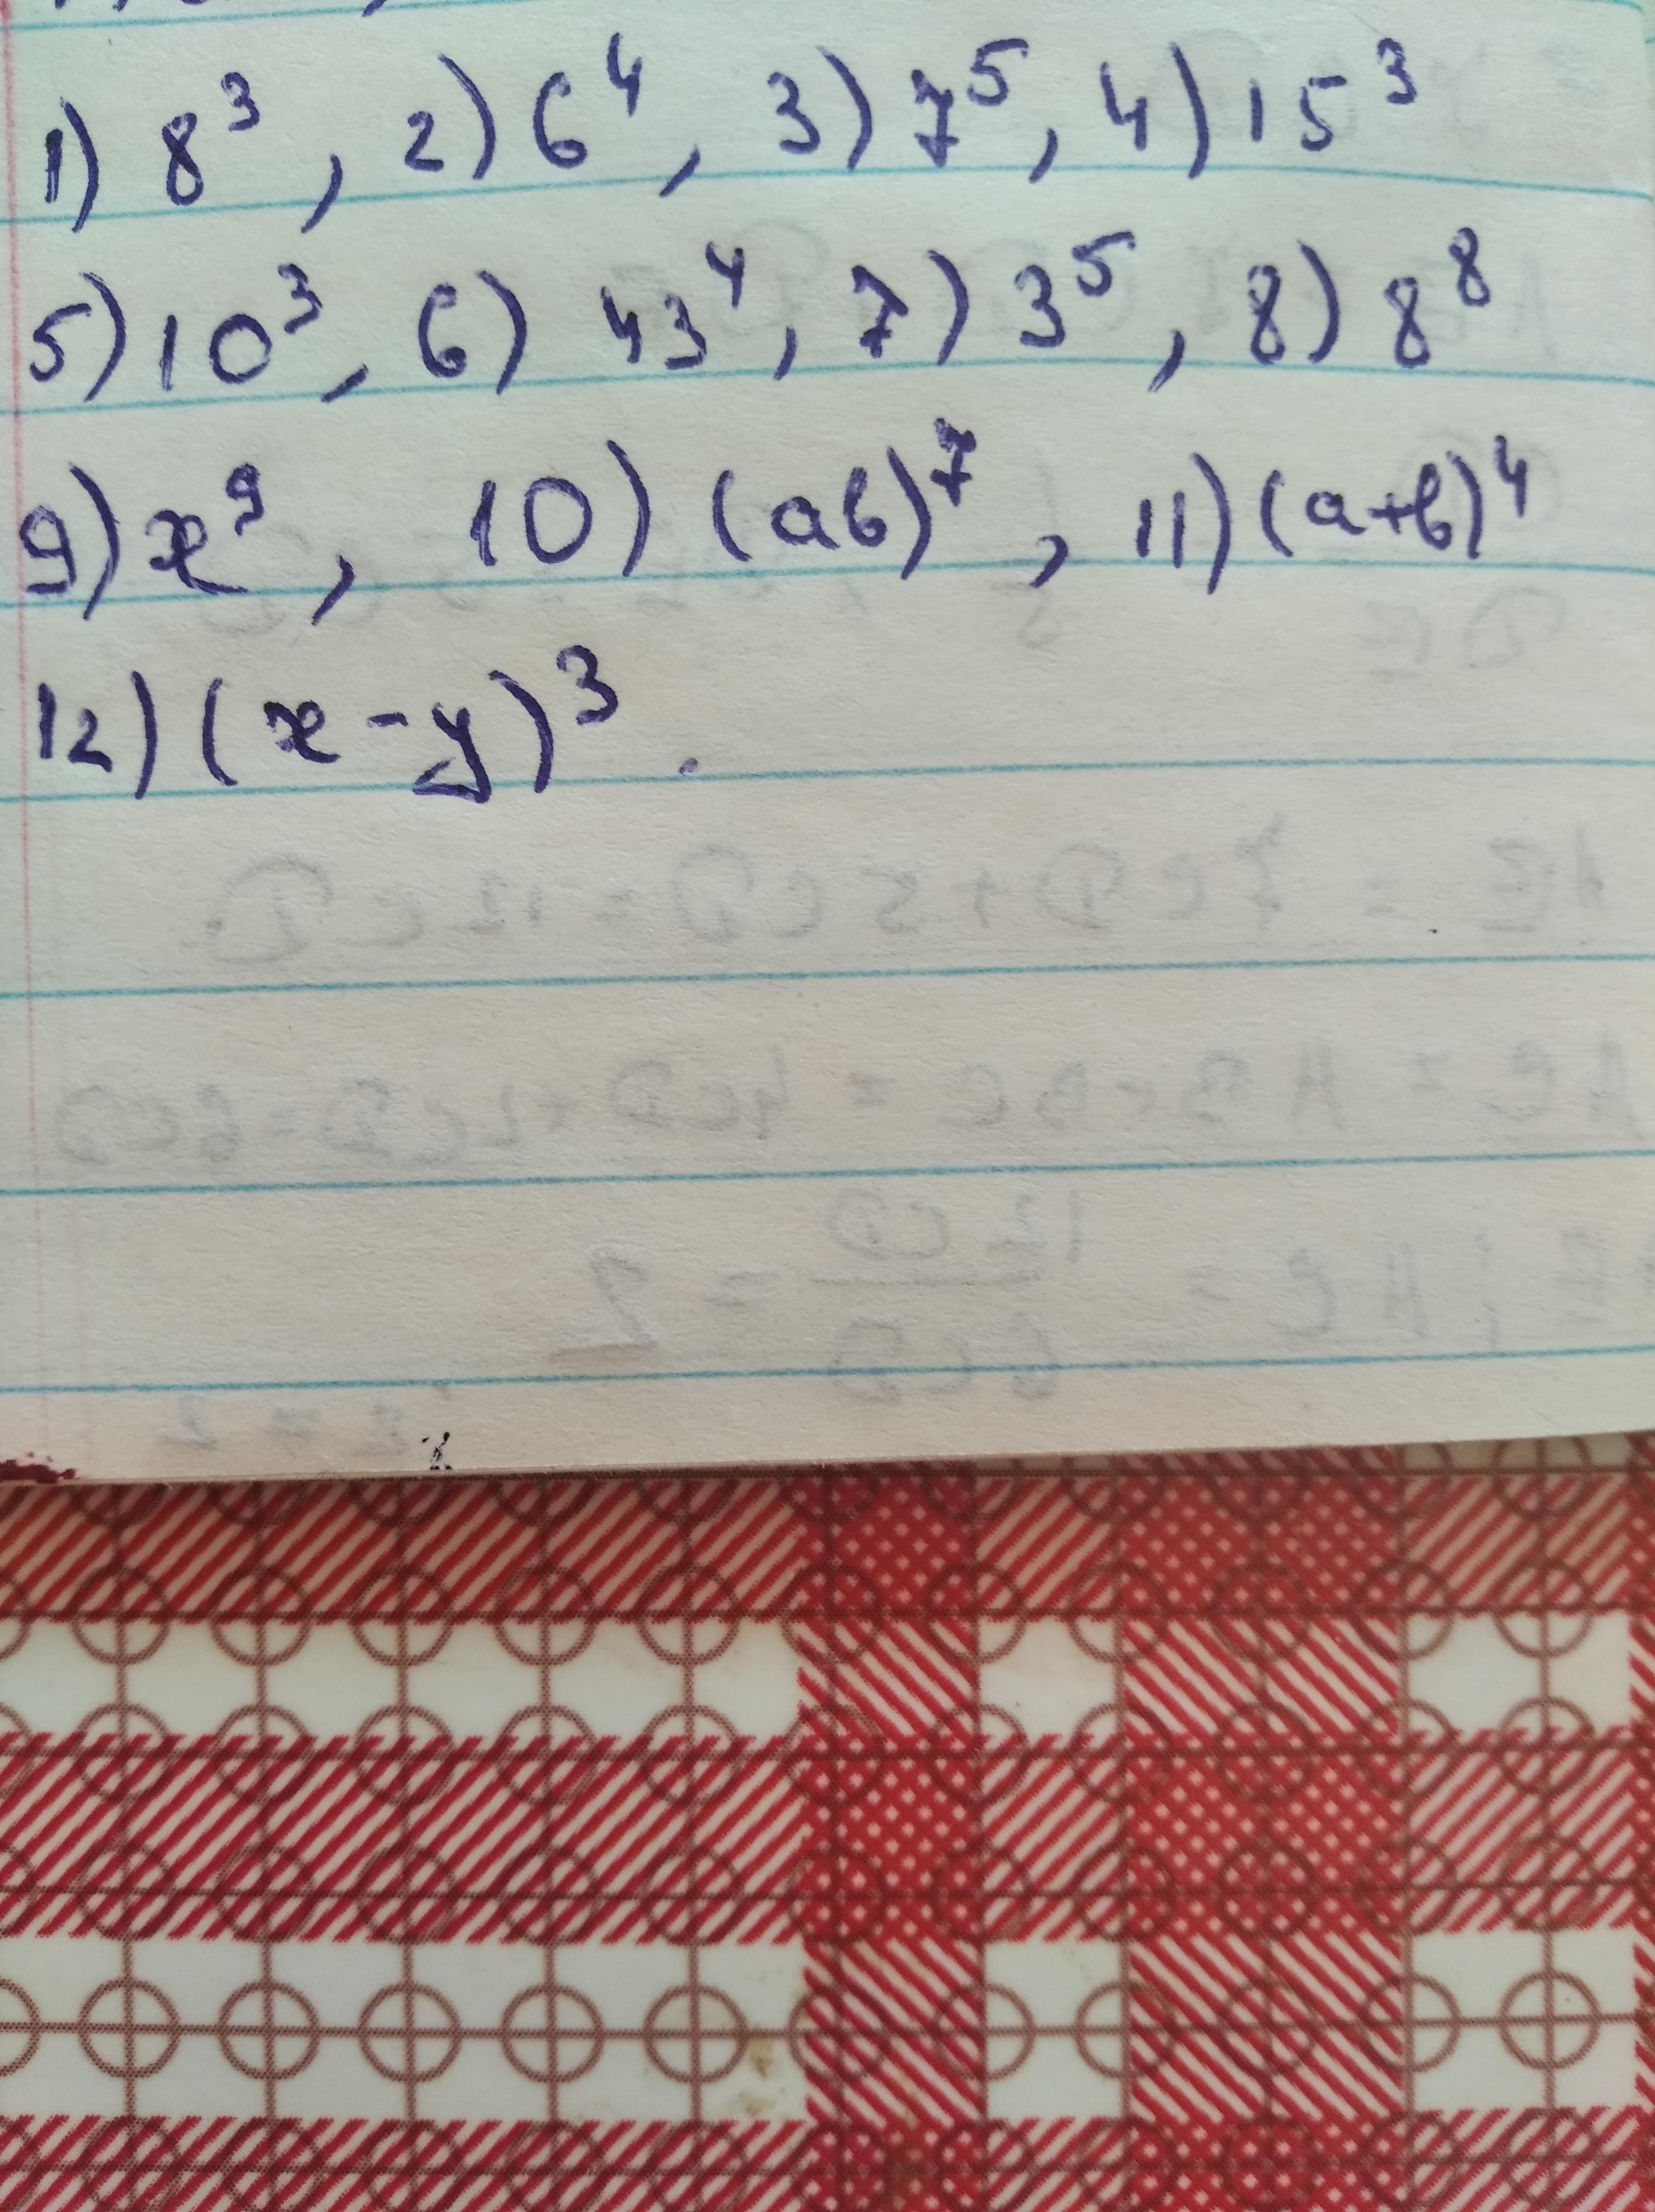 1) 8³, 2) 6⁴, 3) 7⁵, 4) 15³
5) 10³, 6) 43⁴, 7) 3⁵, 8) 8⁸
9) x⁹, 10) (ab)⁷, 11) (a+b)⁴
12) (x-y)³.